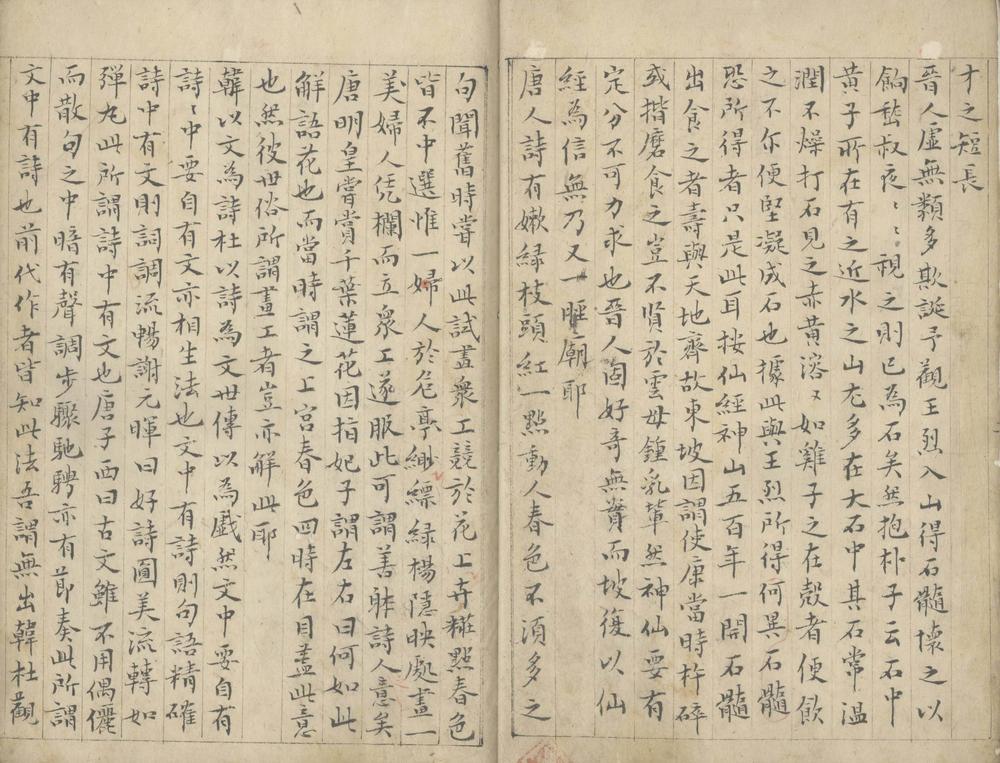 才之短長
晉人虛無類多欺誕予觀王烈入山得石髓懷之以
餉嵇叔夜〻〻視之則已為石矣然抱朴子云石中
黃子所在有之近水之山尤多在大石中其石常溫
潤不燥打石見之赤黃溶〻如雞子之在殼者便飲
之不尓便堅凝成石也據此與王烈所得何異石髓
恐所得者只是此耳按仙經神山五百年一開石髓
出食之者壽與天地齊故東坡因謂使康當時杵碎
或揩磨食之豈不賢於雲母鍾乳輩然神仙要有
定分不可力求也晉人固好奇無實而坡復以仙
經為信無乃又一瞳廟耶
唐人詩有嫩綠枝頭紅一點動人春色不須多之
句聞舊時嘗以此試畫衆工競於花上卉糚點春色
皆不中選惟一婦人於危亭縹緲綠楊隱映處畫一
美婦人凭欄而立衆工遂服此可謂善体詩人意矣
唐明皇嘗賞千葉蓮花因指妃子謂左右曰何如此
解語花也而當時謂之上宮春色四時在目盖此意
也然彼世俗所謂畫工者豈亦解此耶
韓以文為詩杜以詩為文世傳以為戲然文中要自有
詩〻中要自有文亦相生法也文中有詩則句語精確
詩中有文則詞調流暢謝元暉曰好詩圓美流轉如
彈丸此所謂詩中有文也唐子西曰古文雖不用偶儷
而散句之中暗有聲調步驟馳騁亦有節奏此所謂
文中有詩也前代作者皆知此法吾謂無出韓杜觀